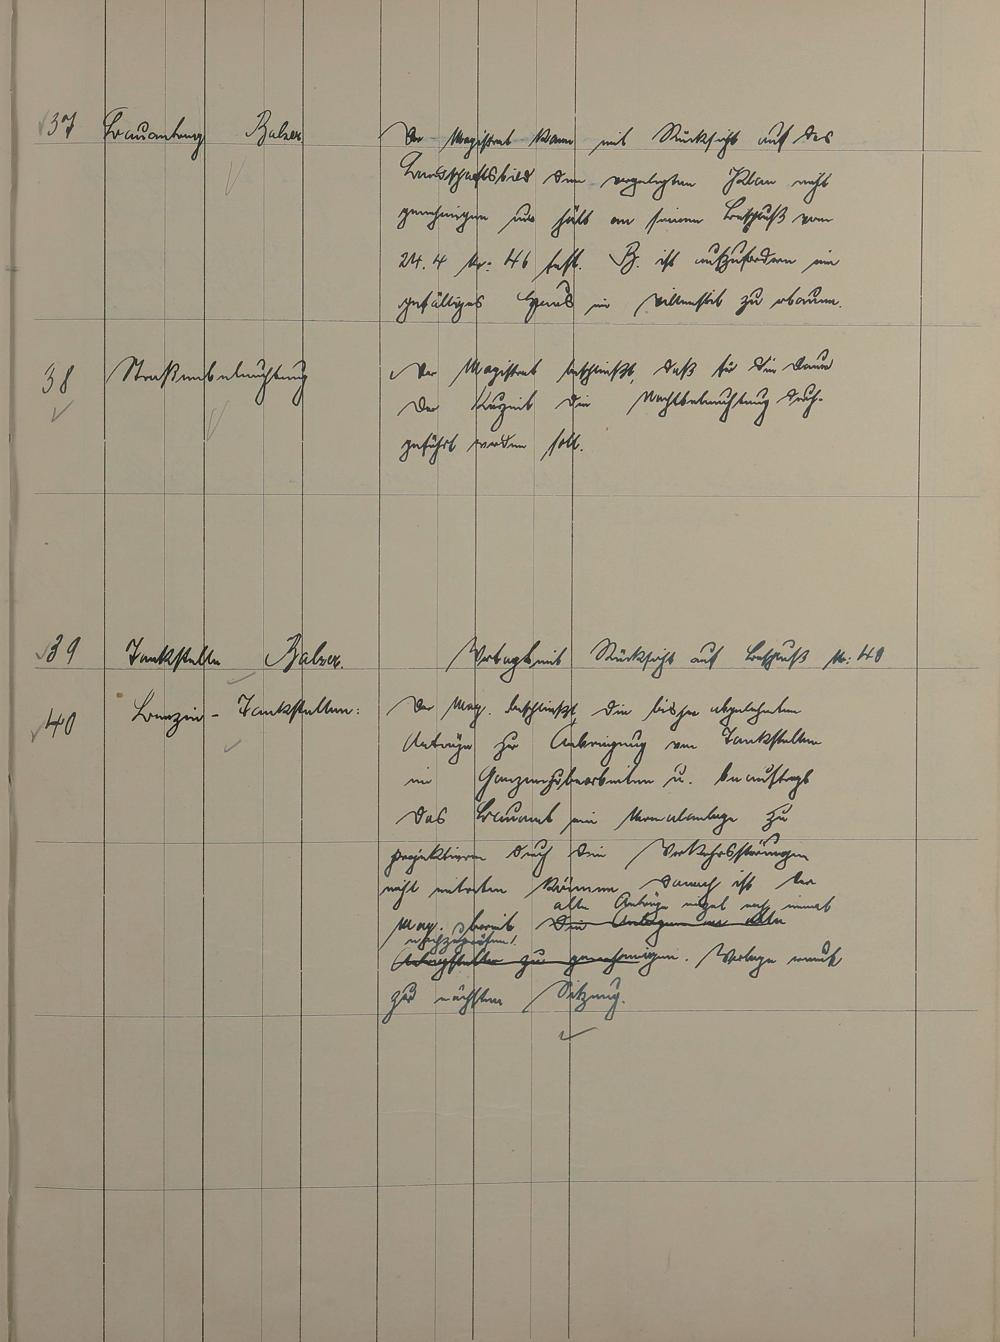 37 Bauantrag Balser.
Der Magistrat kann mit Rücksicht auf das
Landschaftsbild den vorgelegten Plan nicht
genehmigen und hält an seinem Beschluß vom
24.4 Nr: 46 fest. B. ist aufzufordern ein
gefälliges Haus im Villenstil zu erbauen.
38 Straßenbeleuchtung
Der Magistrat beschließt, daß für die Dauer
der Kurzeit die Nachtbeleuchtung durch-
geführt werden soll.
39 Tankstelle Balser.
Vertagt mit Rücksicht auf Beschluß Nr: 40
40 Benzin - Tankstellen:
Der Mag. beschließt, die bisher abgelehnten
Anträge zur Anbringung von Tankstellen
im Ganzen zu bearbeiten u. beauftragt
das Bauamt eine Normalanlage zu
projektieren durch die Verkehrsstörungen
nicht eintreten können. Danach ist der
alle Anträge noch einmal
Mag. bereit die Anlagen an alle
nachzuprüfen!
Antragsteller zu genehmigen. Vorlage
zur nächsten Sitzung.